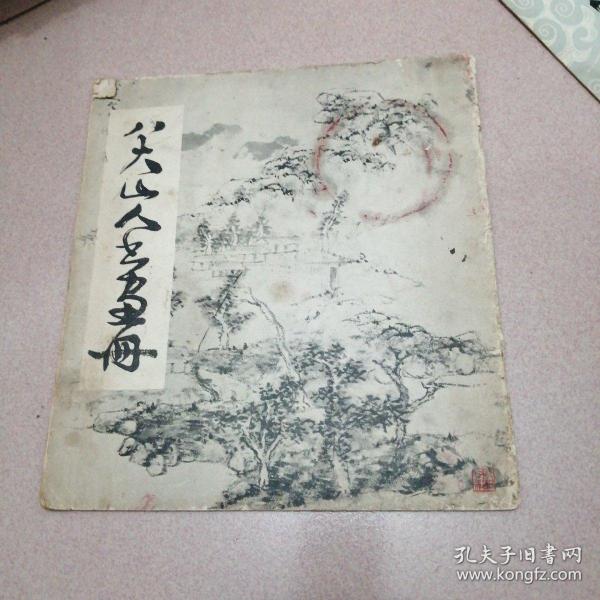 八大山人書畫冊
孔夫子旧书网
www.kongfz.com